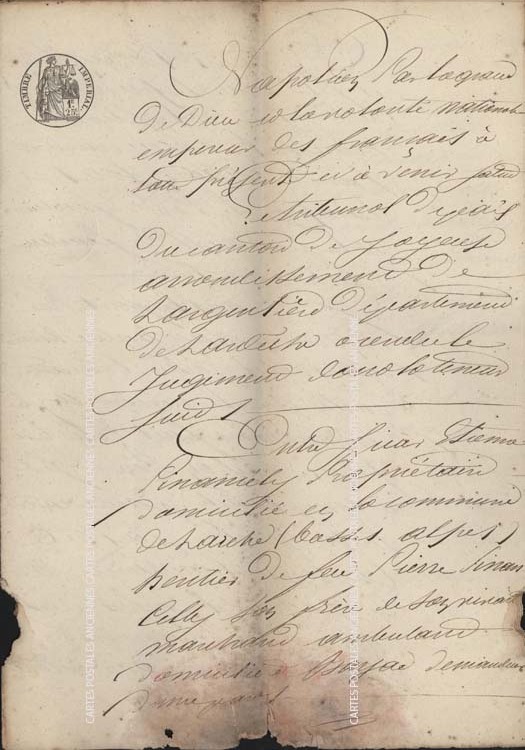 TIMBRE IMPERIAL
Napoléon Par la grace
de Dieu et la volonté nationale
empereur des français à
tous présents et à venir salut
Le tribunal de paix
du canton de Joyeuse
arrondissement de
Largentière département
de Lardèche a rendu le
Jugement dont la teneur
suit
Entre Etienne
Propriétaire
domicilié en la commune
de Larche (basses alpes)
héritier de feu Pierre
son frère de son vivant
marchand ambulant
domicilié demandeur
CARTES POSTALES ANCIENNES CARTES POSTALES ANCIENNES CARTES POSTALES ANCIENNES
CARTES POSTALES ANCIENNES CARTES POSTALES ANCIENNES CARTES POSTALES ANCIENNES